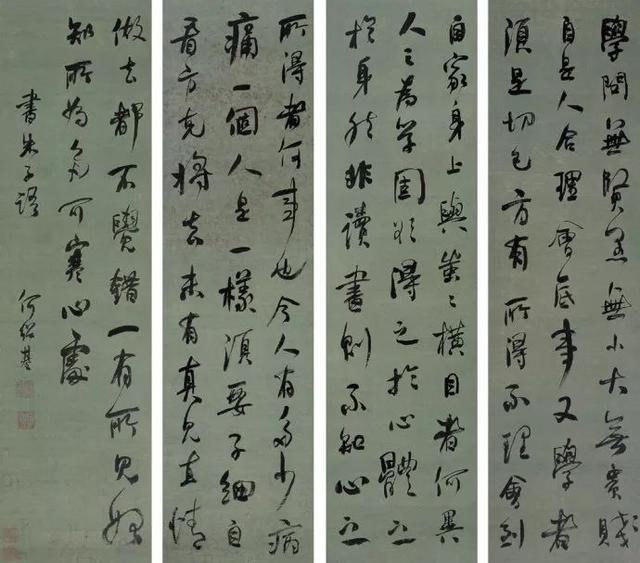 學問無賢愚無小大無貴賤
自是人合理會底事又學者
須是切己方有所得不理會到
自家身上與蚩蚩橫目者何異
人之為學固欲得之於心體之
於身然非讀書則不知心之
所得者何事也今人有多少病
痛一個人是一樣須要子細自
看方克將去未有真見直情
做去都不覺錯一有所見始
知所為多可寒心處
書朱子語
何紹基